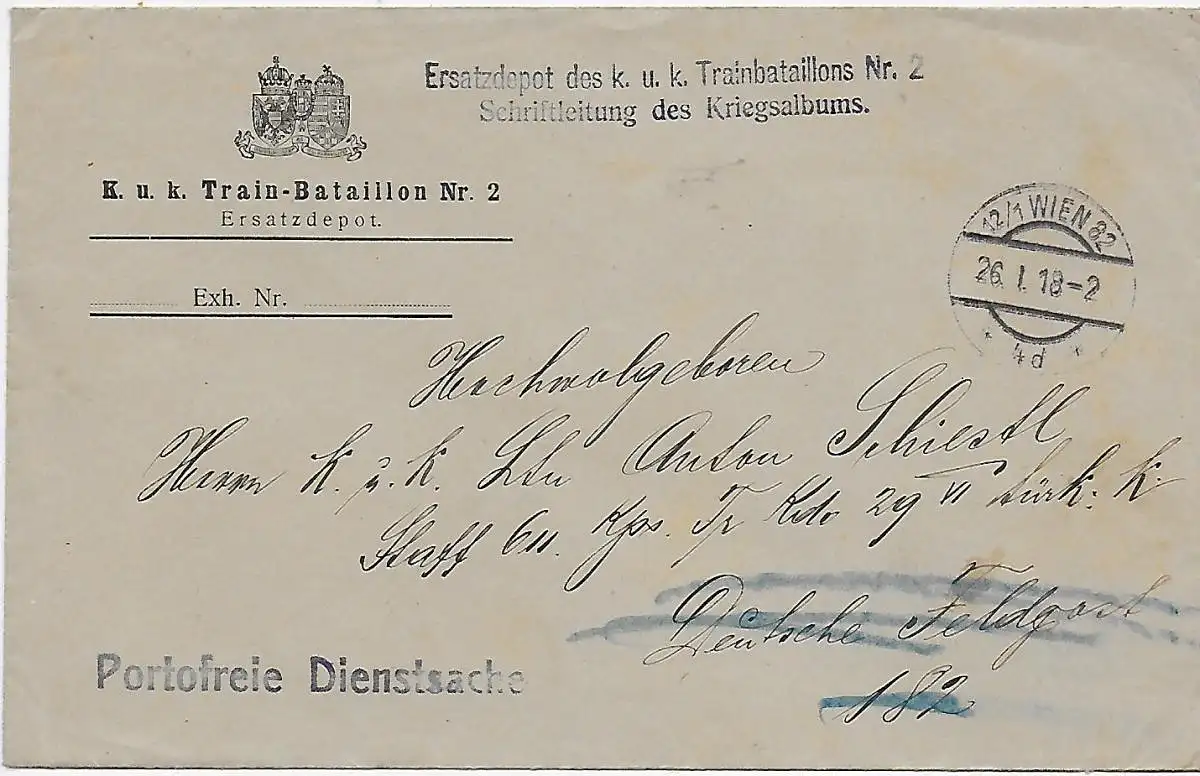 Ersatzdepot des k. u. k. Trainbataillons Nr. 2
Schriftleitung des Kriegsalbums.
K. u. k. Train-Bataillon Nr. 2
Ersatzdepot.
Exh. Nr.
12/1 WIEN 82
26. I. 18-2
* 4d *
Hochwolgeboren
Herrn K. u. K. Ltn Anton Schiestl
Staff 611. Kps. Tr Kdo 29 VI türk. K.
Deutsche Feldpost
182
Portofreie Dienstsache